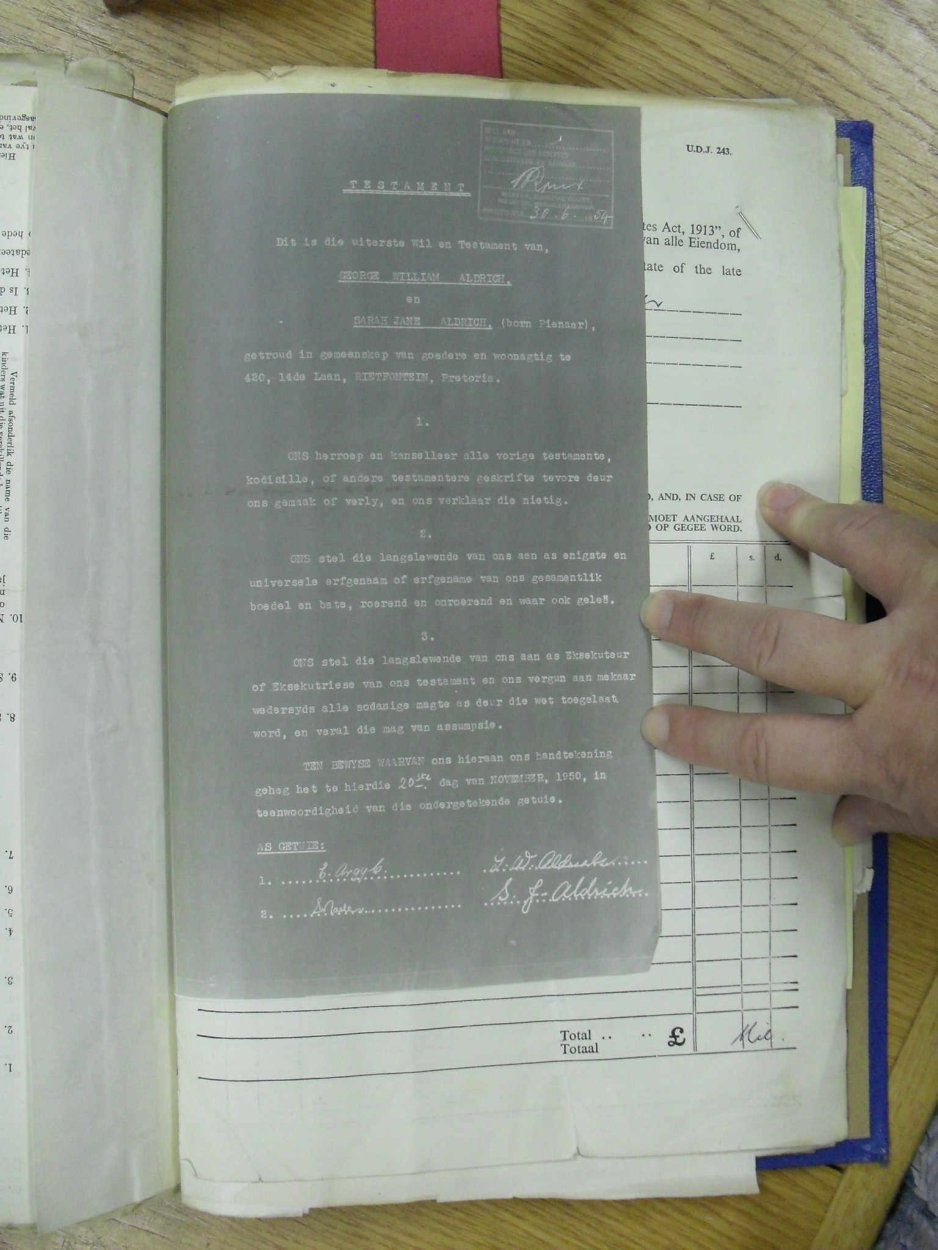 U.D.J. 243.
TESTAMENT
30.6.1954
Dit is die uiterste Wil en Testament van,
GEORGE WILLIAM ALDRICH,
en
SARAH JANE ALDRICH, (born Pienaar),
getroud in gemeenskap van goedere en woonagtig te
420, 14de Laan, RIETFONTEIN, Pretoria.
1.
ONS herroep en kanselleer alle vorige testamente,
kodisille, of andere testamentere geskrifte tevore deur
ons gemaak of verly, en ons verklaar die nietig.
2.
ONS stel die langslewende van ons aan as enigste en
universele erfgenaam of erfgename van ons gesamentlik
boedel en bate, roerend en onroerend en waar ook geleë.
3.
ONS stel die langslewende van ons aan as Eksekuteur
of Eksekutriese van ons testament en ons vergun aan mekaar
wedersyds alle sodanige magte as deur die wet toegelaat
word, en veral die mag van assumpsie.
TEN BEWYSE WAARVAN ons hieraan ons handtekening
geheg het te hierdie 20ste dag van NOVEMBER, 1950, in
teenwoordigheid van die ondergetekende getuie.
AS GETUIE:
1.
2. S. J. Aldrich
tes Act, 1913", of
van alle Eiendom,
tate of the late
D, AND, IN CASE OF
MOET AANGEHAAL
D OP GEGEE WORD.
£ s. d.
Total .. .. £ Nil.
Totaal
Vermeld afsonderlik die name van die
10.
9.
8.
7.
6.
5.
4.
3.
2.
1.